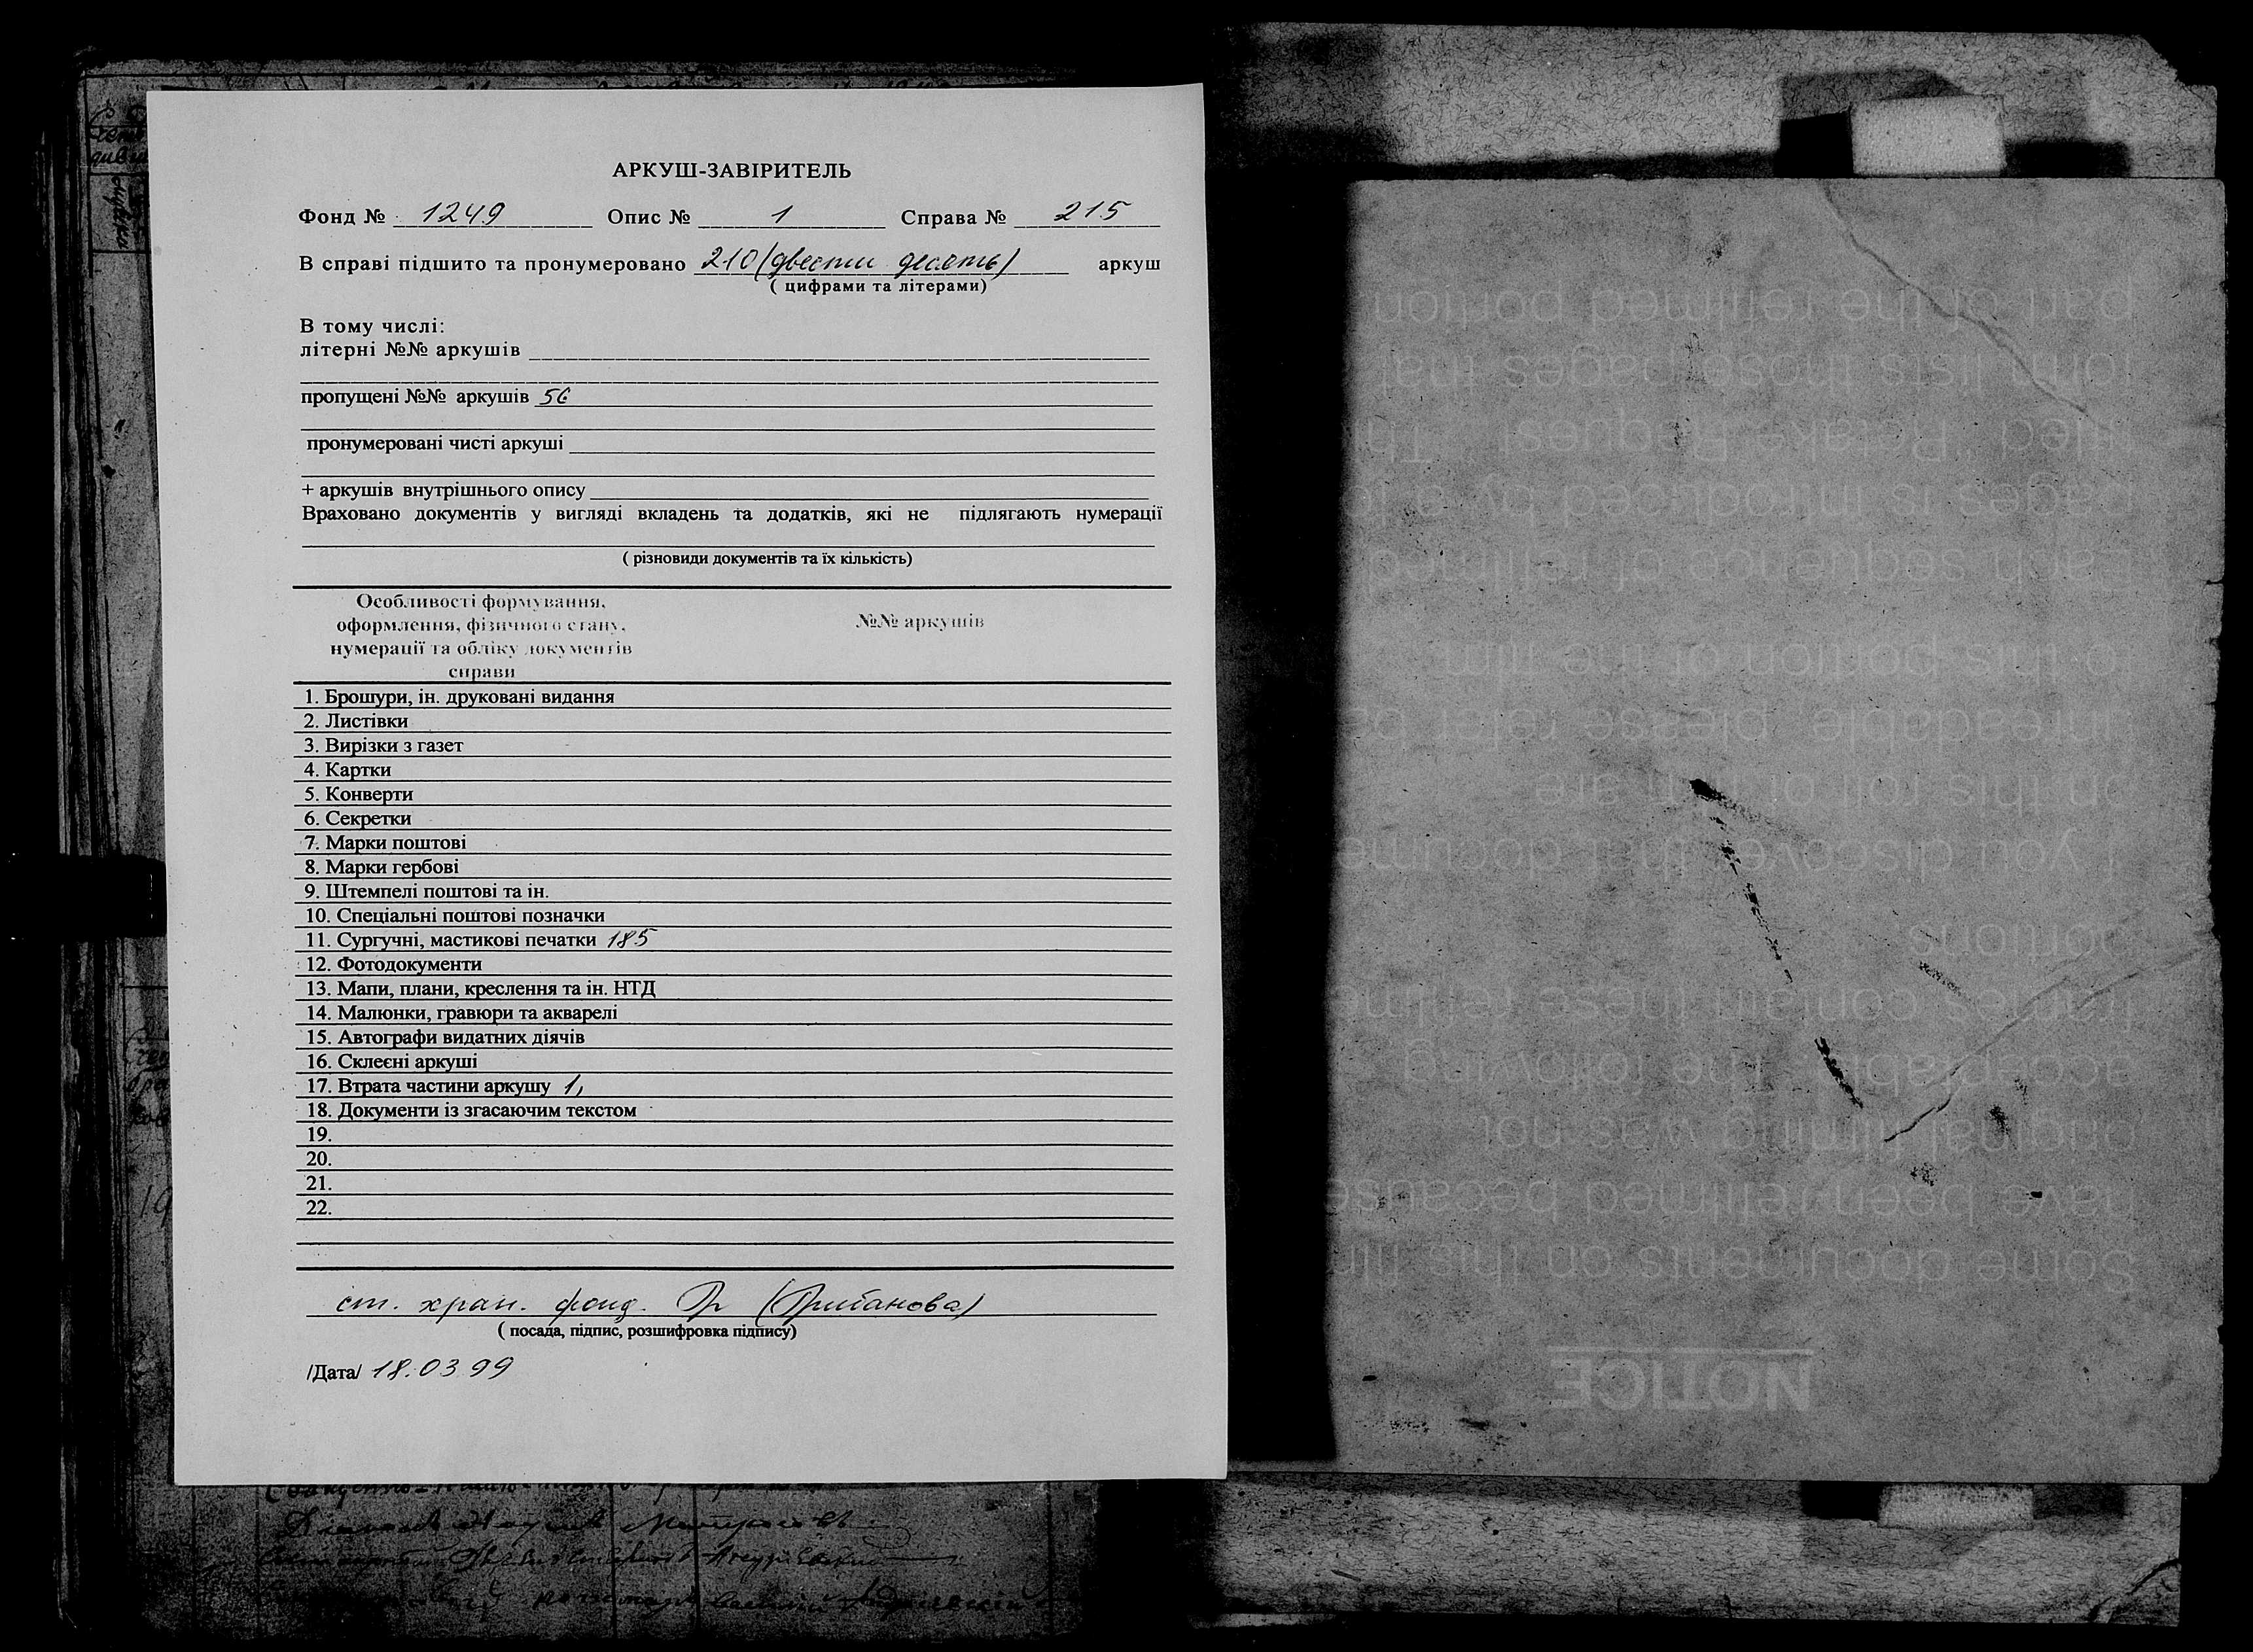 АРКУШ-ЗАВІРИТЕЛЬ
Фонд № 1249 Опис № 1 Справа № 215
В справі підшито та пронумеровано 210 (двести десять) аркуш
( цифрами та літерами)
В тому числі:
літерні №№ аркушів
пропущені №№ аркушів 56
пронумеровані чисті аркуші
+ аркушів внутрішнього опису
Враховано документів у вигляді вкладень та додатків, які не підлягають нумерації
( різновиди документів та їх кількість)
Особливості формування, №№ аркушів
оформлення, фізичного стану,
нумерації та обліку документів
справи
1. Брошури, ін. друковані видання
2. Листівки
3. Вирізки з газет
4. Картки
5. Конверти
6. Секретки
7. Марки поштові
8. Марки гербові
9. Штемпелі поштові та ін.
10. Спеціальні поштові позначки
11. Сургучні, мастикові печатки 185
12. Фотодокументи
13. Мапи, плани, креслення та ін. НТД
14. Малюнки, гравюри та акварелі
15. Автографи видатних діячів
16. Склеєні аркуші
17. Втрата частини аркушу 1,
18. Документи із згасаючим текстом
19.
20.
21.
22.
ст. хран. фонд.
( посада, підпис, розшифровка підпису)
/Дата/ 18.03.99
NOTICE
Some documents on this
have been refilmed because
original filming was not
acceptable. The following
frames contain these
portions.
If you discover that
on this roll of film are
unreadable, please refer
to this portion of the film
Each sequence of refilmed
pages is introduced by
titled "Retake Request".
form lists those pages that
part of the refilmed portion